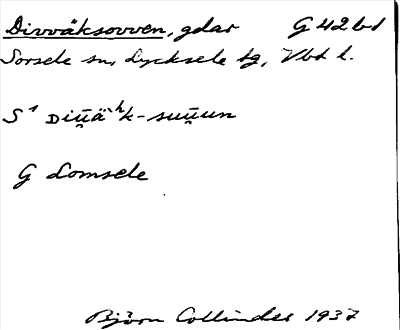 Divväksovven, gdar G 42 bd
Sorsele sn, Lycksele tg, Vbt l.
S¹ Diṷ̄ä`ʰk-suṷ̄un
G Lomsele
Björn Collinder 1937